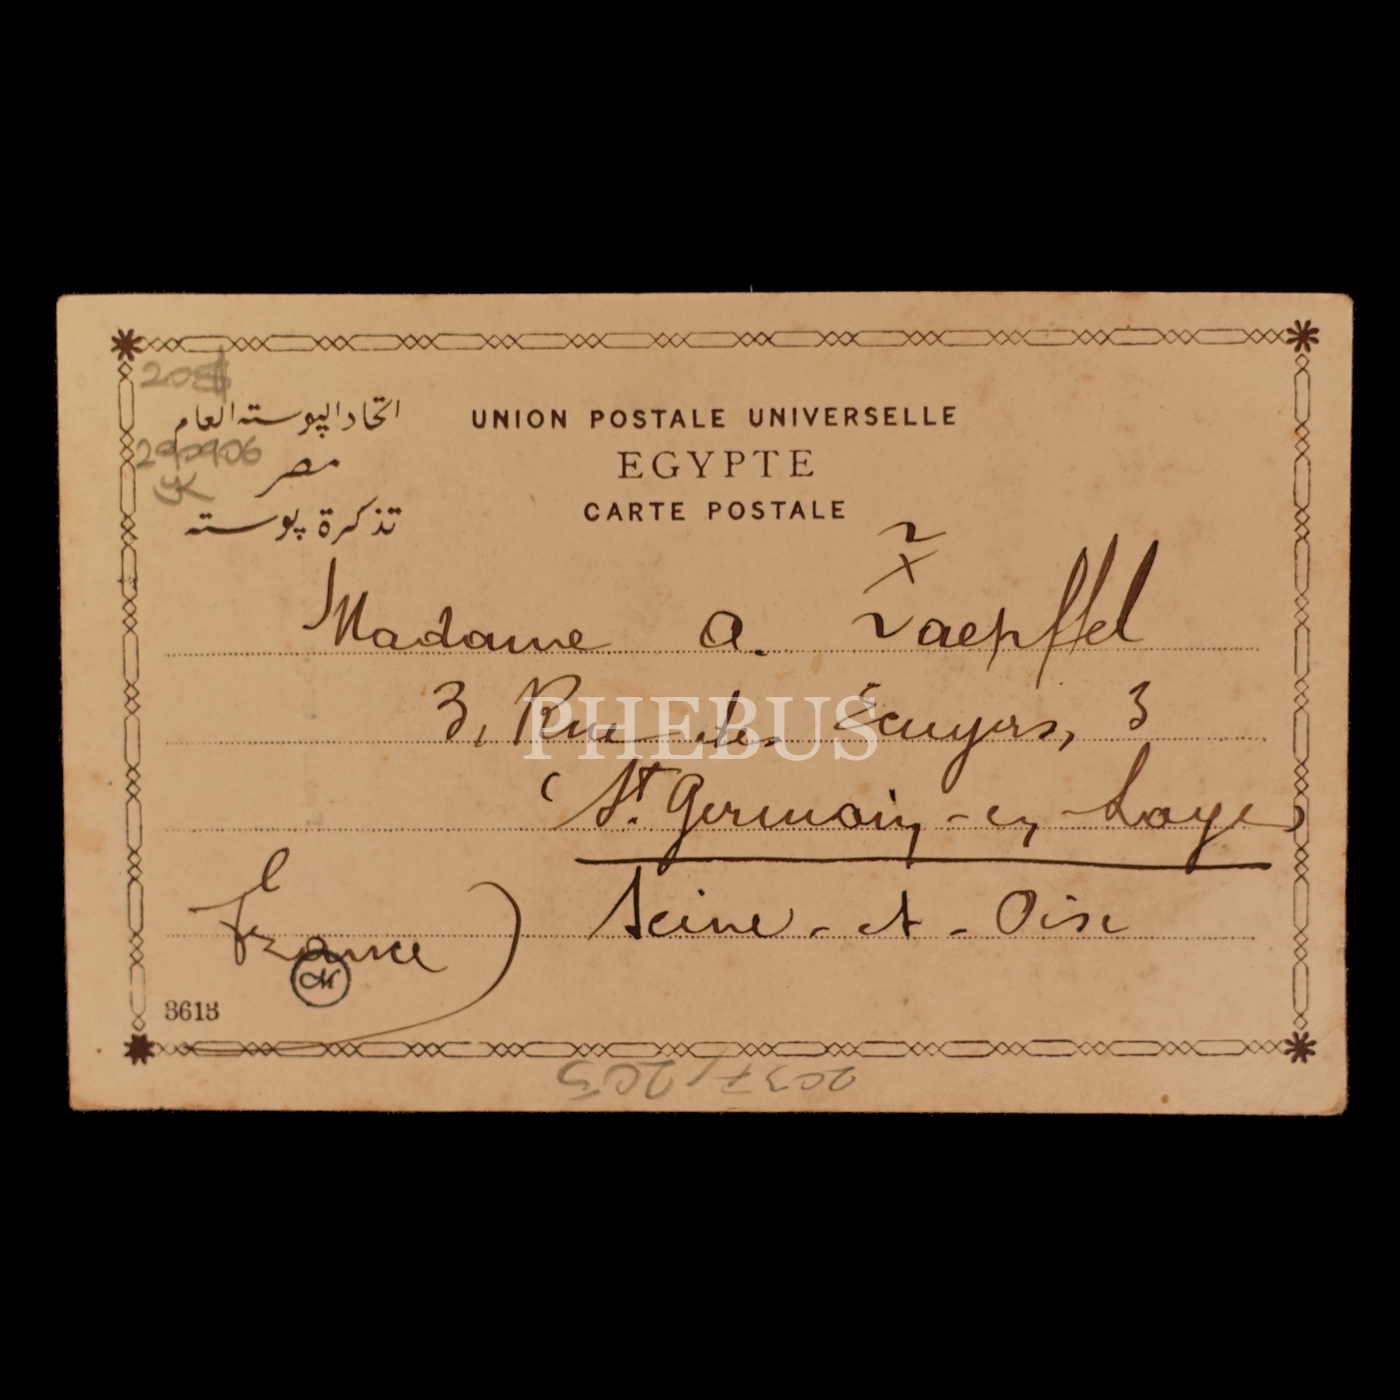 اتحاد البوسته العام
مصر
تذكرة بوسته
UNION POSTALE UNIVERSELLE
EGYPTE
CARTE POSTALE
Madame A. Zaepffel
3, Rue des Écuyers, 3
(St Germain-en-Laye)
Seine-et-Oise
(France)
M
3613
2037/205
PHEBUS